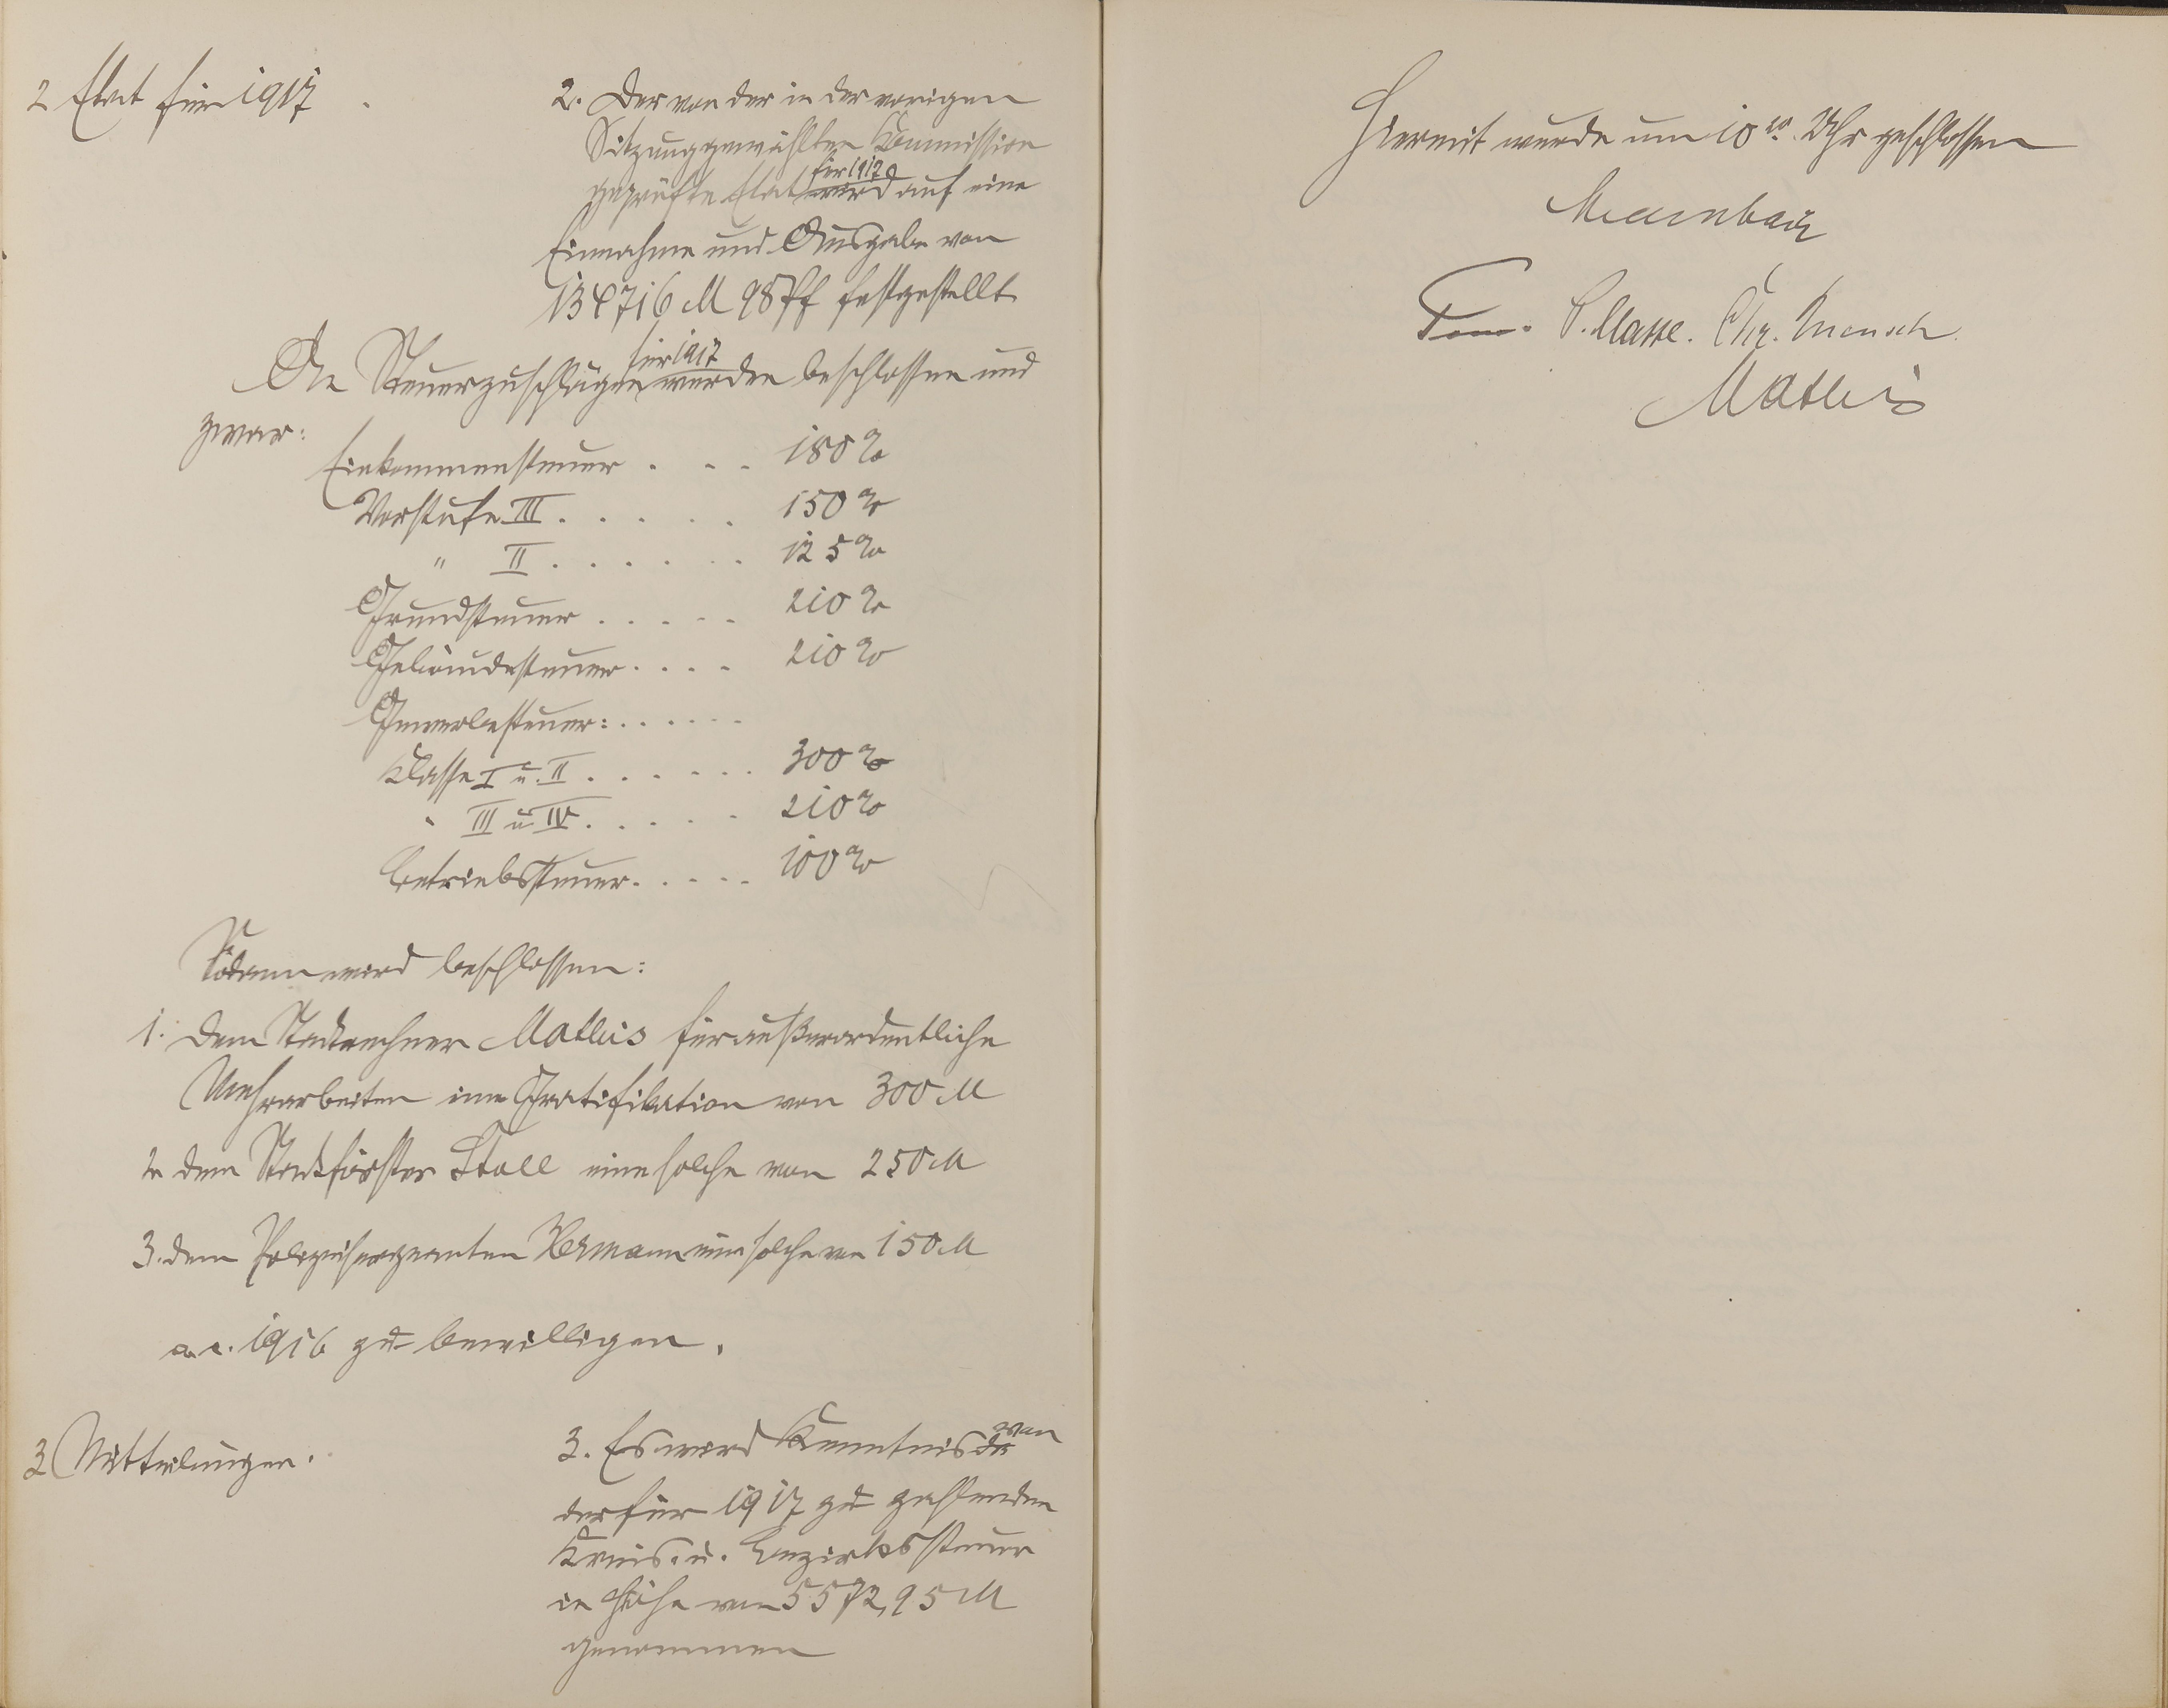 2 Etat für 1917.
2. Der von der in der vorigen
Sitzung gewählten Kommission
geprüfte Etat für 1917 wird auf eine
Einnahme und Ausgabe von
134716 M 98 Pf festgestellt
Die Steuerzuschläge für 1917 wurden beschlossen und
zwar:
Einkommensteuer . . . 180 %
Vorstufe III . . . . . 150 %
" II . . . . . . 125 %
Grundsteuer . . . . . 210 %
Gebäudesteuer . . . . 210 %
Gewerbesteuer: . . . . . .
Klasse I u. II . . . . . . 300 %
" III u IV . . . . . 210 %
Betriebssteuer . . . . . 100 %
Sodann wird beschlossen:
1. dem Stadtrechner Matheis für außerordentliche
Mehrarbeiten eine Gratifikation von 300 M
2. dem Stadtförster Stoll eine solche von 250 M
3. dem Polizeisergeanten Hermann eine solche von 150 M
a. c. 1916 zu bewilligen.
3 Mitteilungen.
3. Es wird Kenntnis von
der für 1917 zu zahlenden
Kreis- u. Bezirkssteuer
in Höhe von 5572,95 M
genommen
Hiermit wurde um 10 Uhr geschlossen
P. Masse. Chr. Mensch.
Matheis